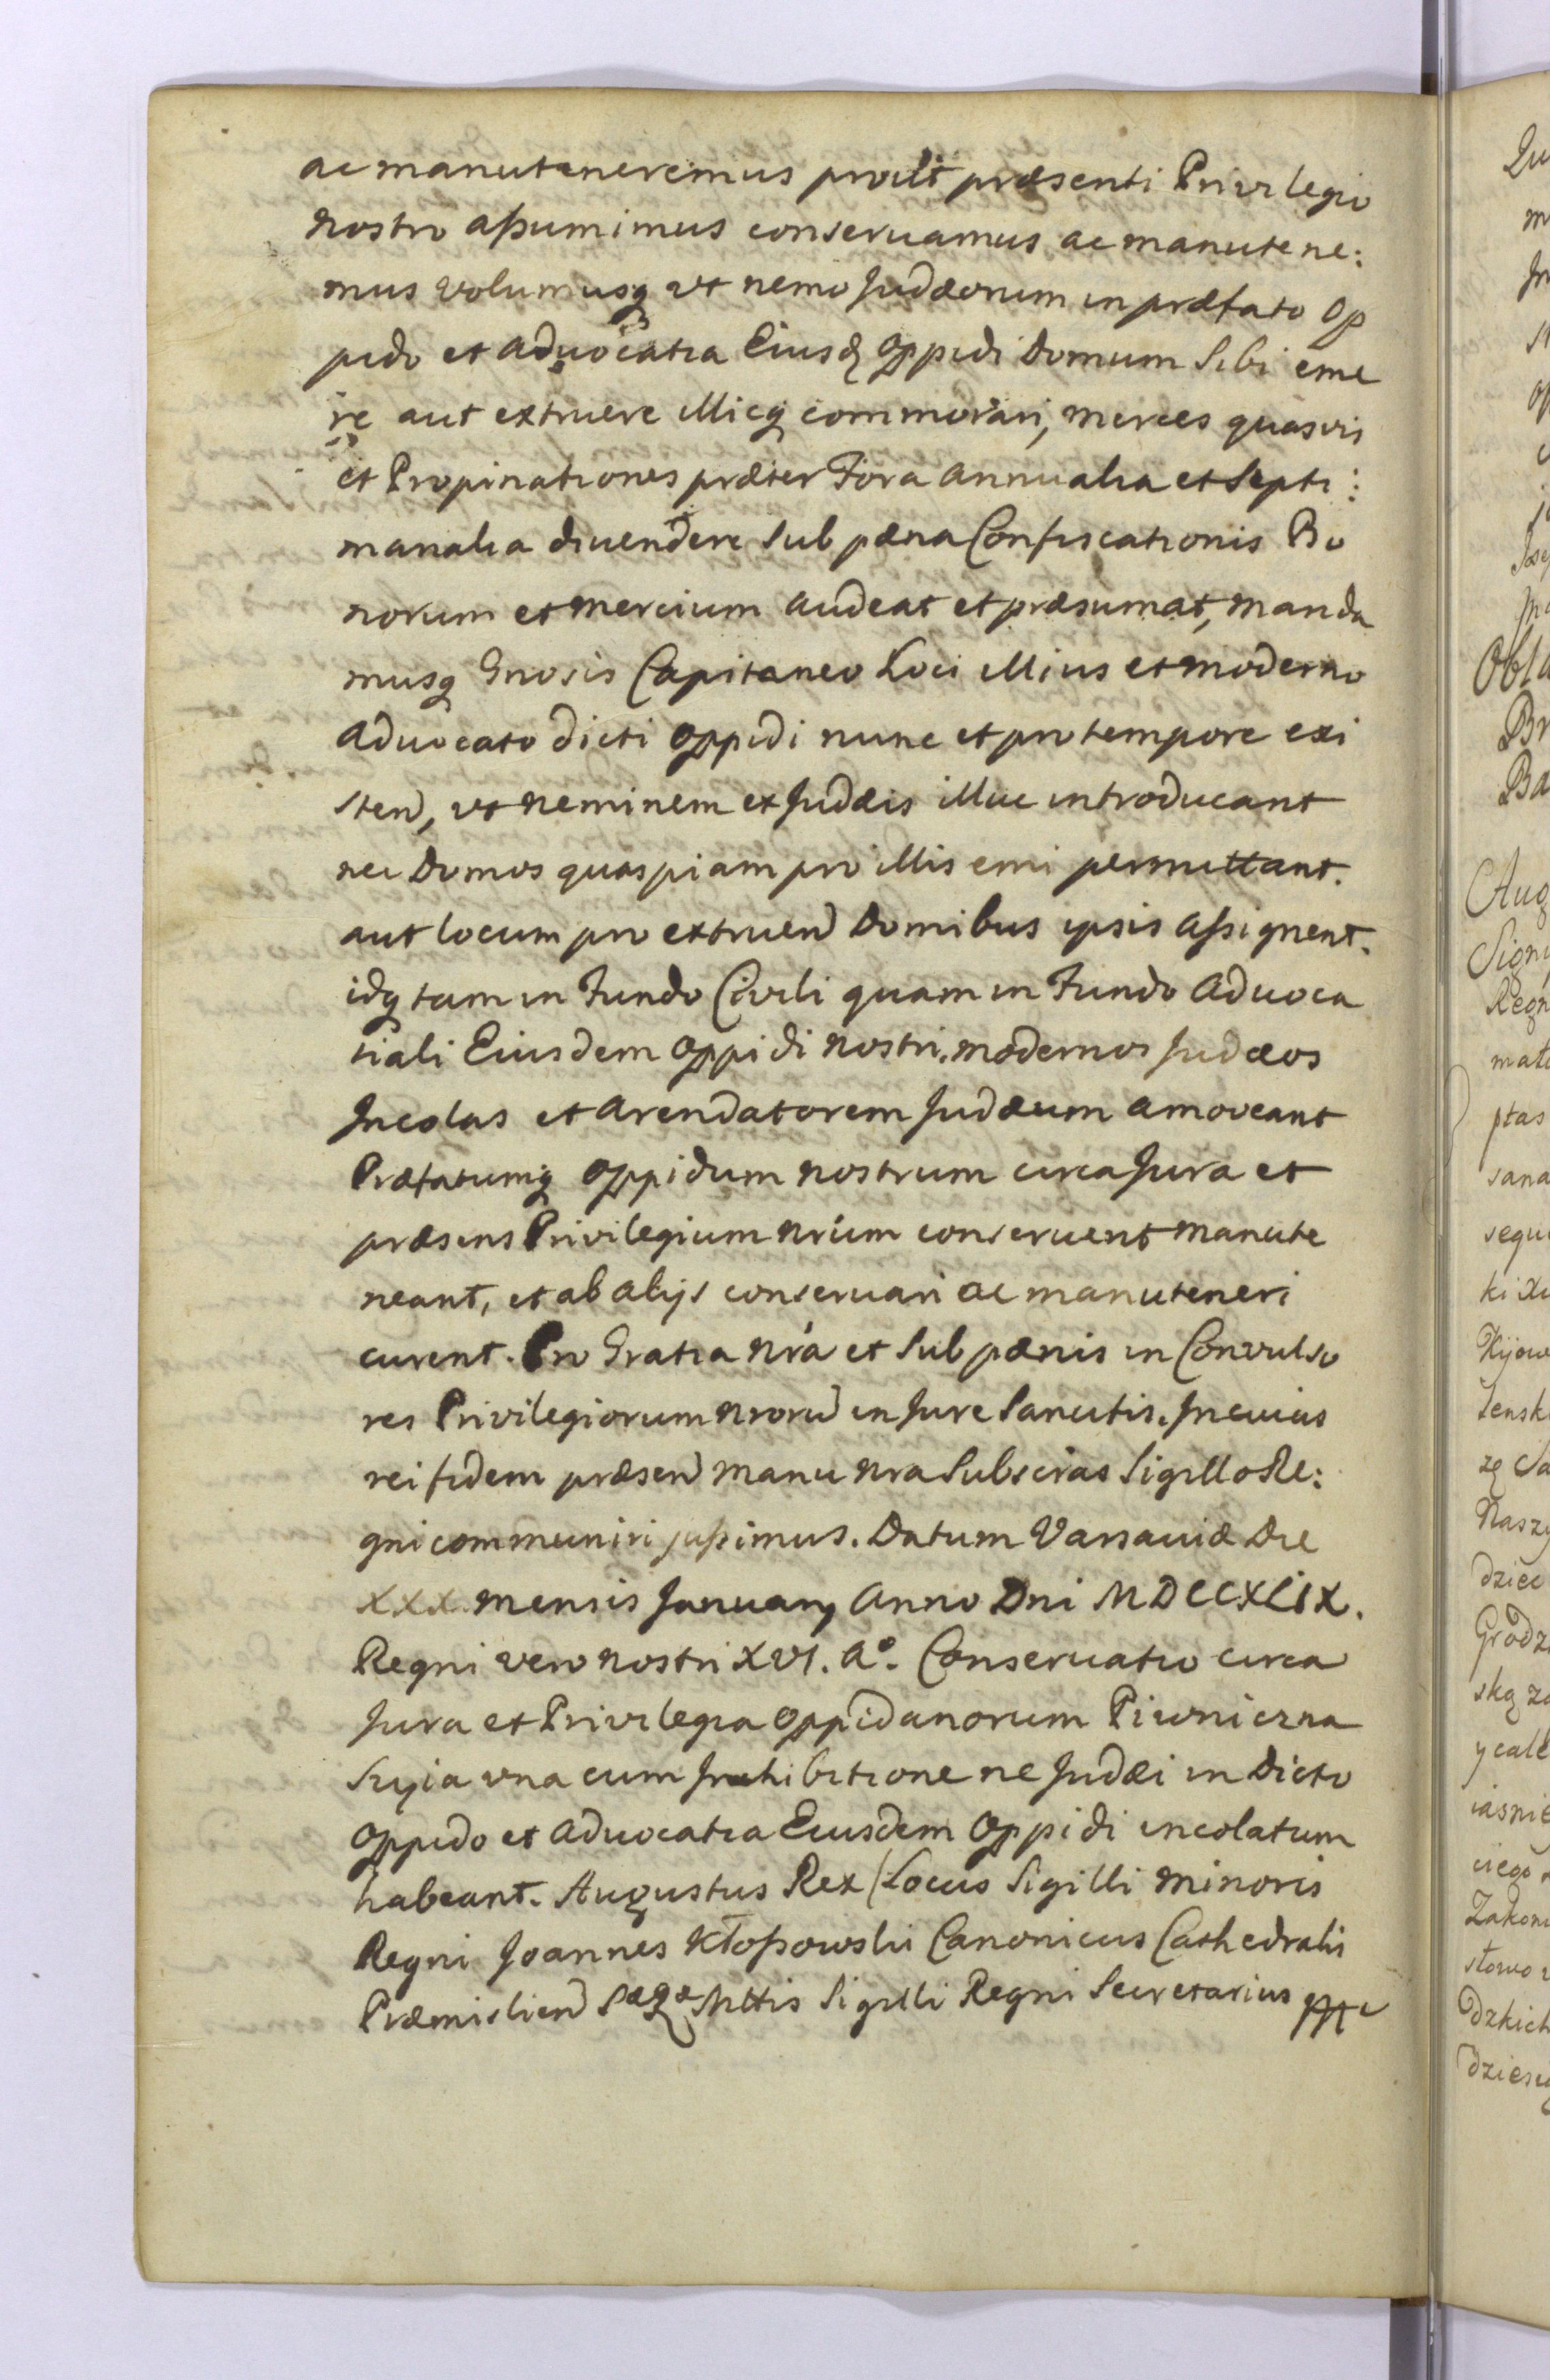 ac manuteneremus proút præsenti Privilegio
nostro aßumimus conseruamus ac manutene:
mus volumusq vt nemo Judæorum in præfato op
pido et aduocatia Eiusd oppidi Domum Sibi eme
re aut extruere illicq commorari, merces quasvis
et Propinationes præter Fora annualia et Septi:
manalia diuendere Sub pæna Confiscationis Bo
norum et mercium audeat et præsumat, manda
musq Gnosis Capitaneo Loci illius et moderno
aduocato dicti oppidi nunc et pro tempore exi
sten, vt neminem ex Judæis illuc introducant
nec Domos quaspiam pro illis emi permittant.
aut locum pro extruen Domibus ipsis aßignent.
idq tam in Fundo Civili quam in Fundo aduoca
tiali Eiusdem oppidi nostri. modernos Judæos
Incolas et arendatorem Judæum amoveant
Præfatumq oppidum nostrum circa Jura et
præsens Privilegium nrúm conseruent manute
neant, et ab alijs conseruari ac manuteneri
curent. Pro Gratia nrá et Sub pænis in Convulso
res Privilegiorum nroru in Jure Sancitis. In cuius
rei fidem præsen manu nra Subscras Sigillo Re:
gni communiri jußimus. Datum Varsauiæ Die
XXX. mensis January anno Dni MDCCXLIX.
Regni vero nostri XVI. Aº. Conseruatio circa
Jura et Privilegia oppidanorum Piwniczna
Szyia vna cum Inhibitione ne Judæi in dicto
oppido et aduocatia Eiusdem oppidi incolatum
habeant. Augustus Rex /Locus Sigilli minoris
Regni Joannes Kłoßowski Canonicus Cathedralis
Præmislien Sæ Ræ Mttis Sigilli Regni Secretarius
Obla
Br
Ba
Aug
ptas
sana
Naszy
dziec
Grodz
y cale
iasnie